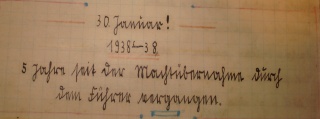 30. Januar!
1938←38
5 Jahre seit der Machtübernahme durch
dem Führer vergangen.